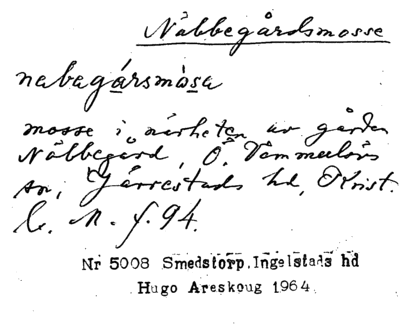 Näbbegårdsmosse
nabagársmåsa
mosse i närheten av gården
Näbbegård, Ö. Vemmerlövs
sn, Järrestads hd, Krist.
l. M. f. 94.
Nr 5008 Smedstorp, Ingelstads hd
Hugo Areskoug 1964